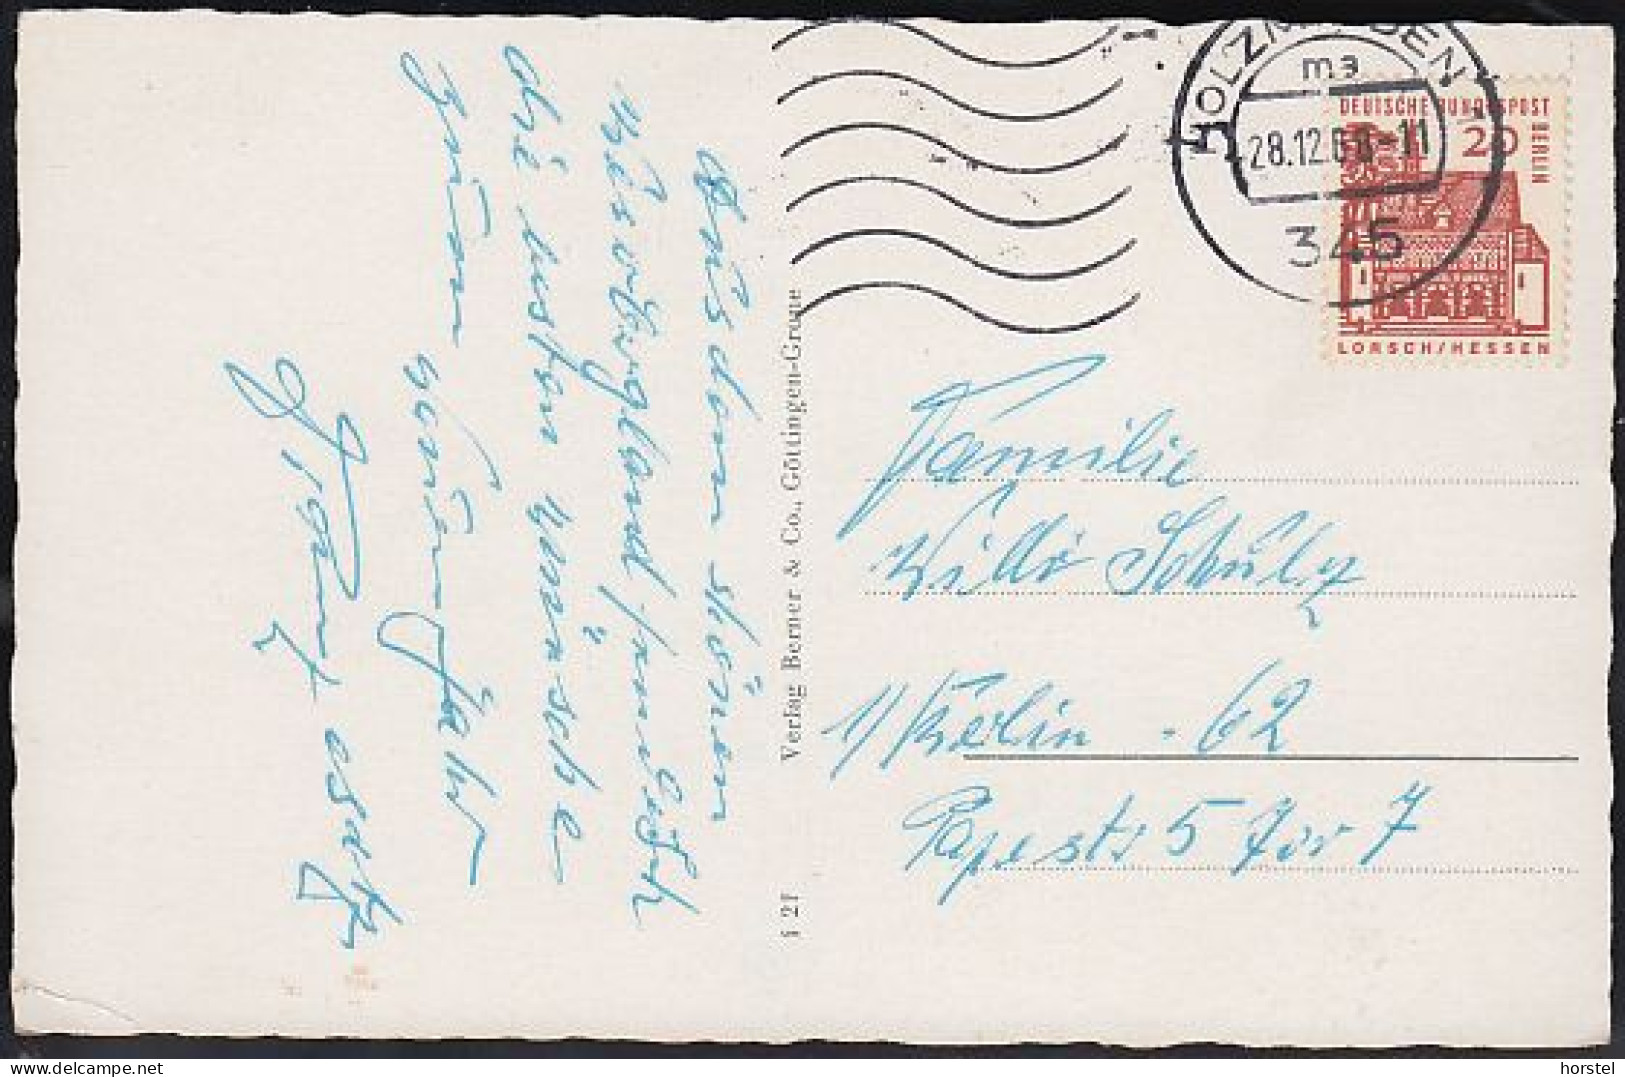 Aus dem schönen
Weserbergland send ich
die besten Wünsche
zum
neuen Jahr
Verlag Berner & Co., Göttingen-Grone
§ 21
HOLZMINDEN
ma
28.12.68-11
345
DEUTSCHE BUNDESPOST
BERLIN
20
LORSCH/HESSEN
Familie
Willi Schulz
1/Berlin - 62
Papestr 5 Tor 7
horstel